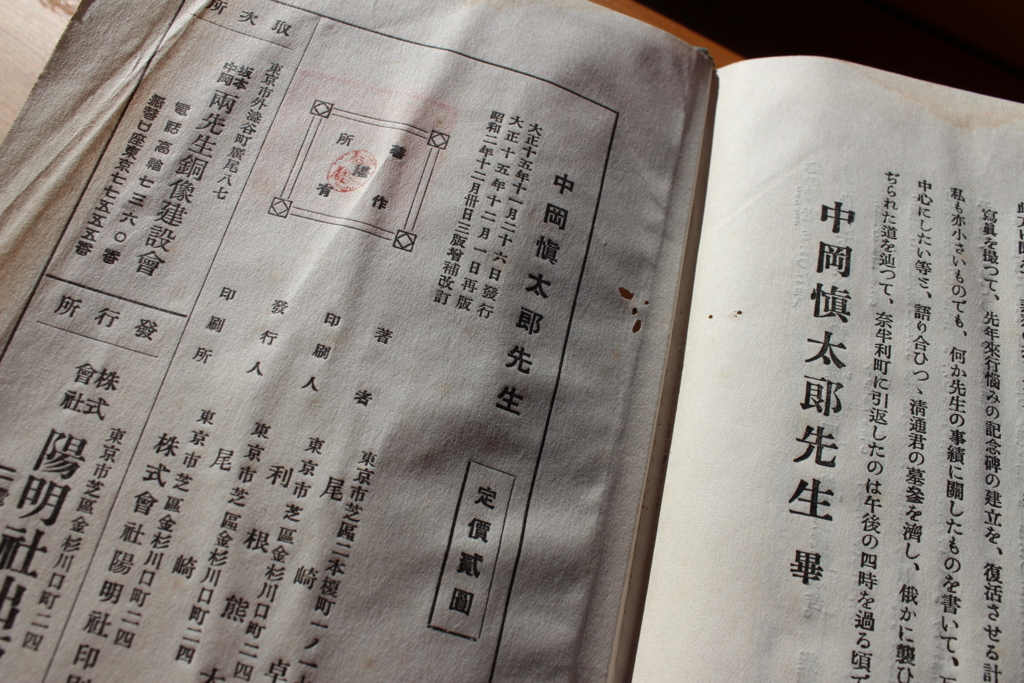 寫眞を撮つて、先年來行惱みの記念碑の建立を、復活させる計
私も亦小さいものでも、何か先生の事績に關したものを書いて、
中心にしたい等と、語り合ひつゝ清通君の墓參を濟し、俄かに襲ひ
ぢられた道を辿つて、奈半利町に引返したのは午後の四時を過る頃で
中岡愼太郎先生 畢
中岡愼太郎先生
定價貳圓
大正十五年十一月二十六日發行
大正十五年十二月一日再版
昭和二年十二月卅日三版增補改訂
著作
所有
著者
東京市芝區二本榎町一ノ一
尾崎卓
印刷人
東京市芝區金杉川口町二四
利根熊
發行人
東京市芝區金杉川口町二四
尾崎
印刷所
東京市芝區金杉川口町二四
株式會社陽明社印刷
取次所
東京市外澁谷町廣尾八七
坂本
中岡
兩先生銅像建設會
電話高輪七三六〇番
振替口座東京七七五五五番
發行所
東京市芝區金杉川口町二四
株式
會社
陽明社出